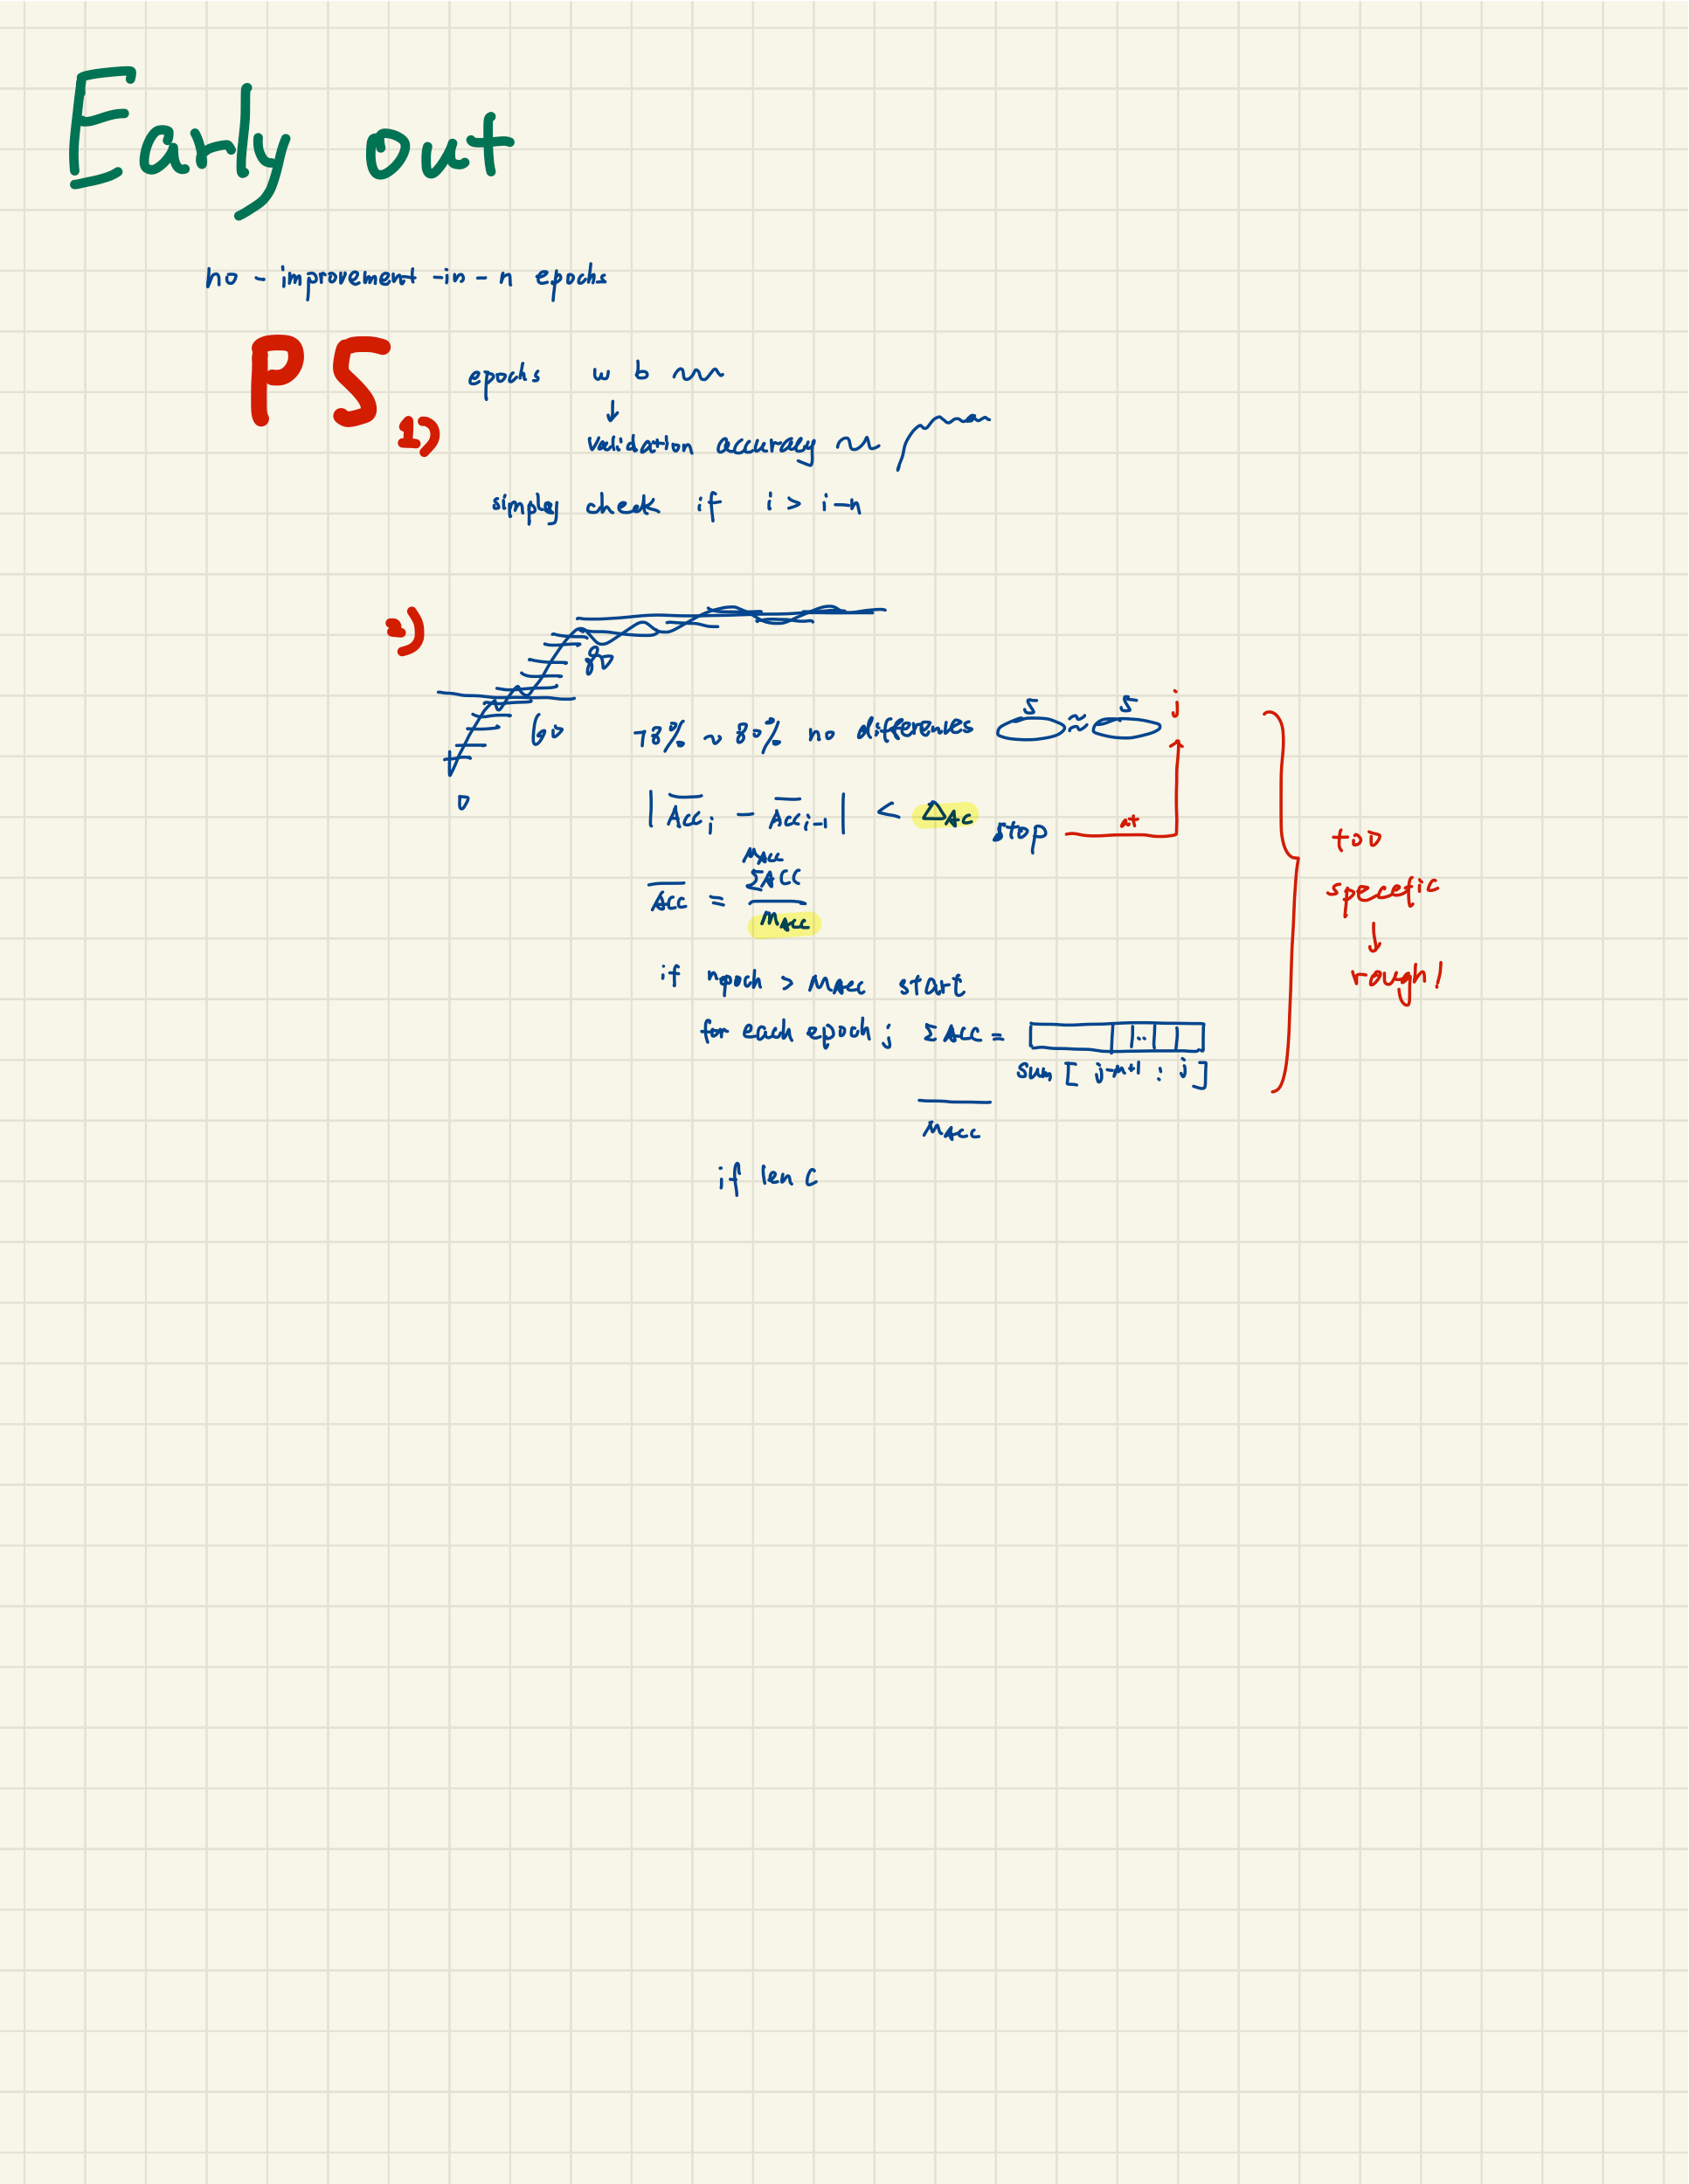 Early out
no - improvement -in - n epochs
PS
1)
epochs w b
↓
validation accuracy
simply check if i > i-n
2)
80
60
0
78% ~ 80% no differences 5 ≈ 5 j
|Acc̅ᵢ - Acc̅ᵢ₋₁| < Δ_AC stop at
M_Acc
ΣACC
A̅c̅c̅ = ───
M_Acc
if npoch > M_Acc start
for each epoch j ΣACC =
sum [ j-n+1 : j ]
M_Acc
if len C
too
specefic
↓
rough!